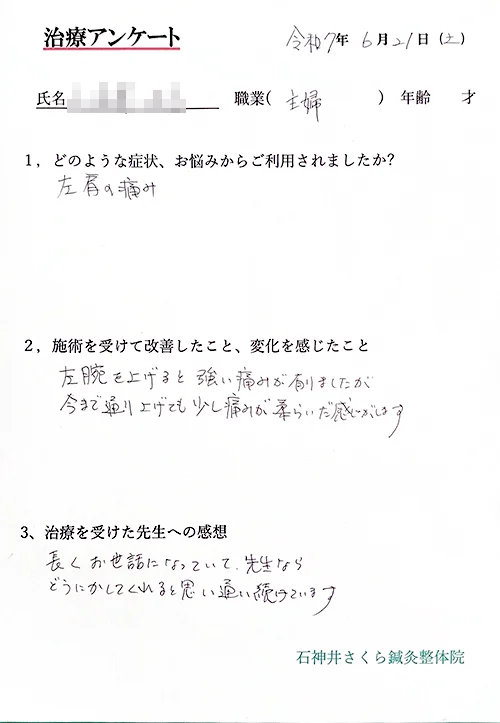 治療アンケート 令和7年 6月21日(土)
氏名 職業( 主婦 ) 年齢 才
1, どのような症状、お悩みからご利用されましたか?
左肩の痛み
2, 施術を受けて改善したこと、変化を感じたこと
左腕を上げると強い痛みが有りましたが
今まで通り上げても少し痛みが柔らいだ感じがします
3、治療を受けた先生への感想
長くお世話になっていて、先生なら
どうにかしてくれると思い通い続けています
石神井さくら鍼灸整体院